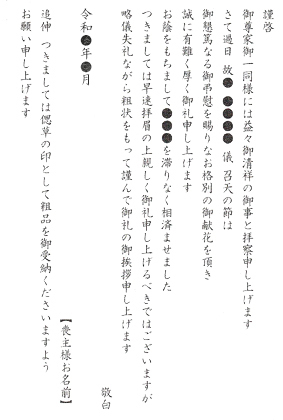 謹啓
御尊家御一同様には益々御清祥の御事と拝察申し上げます
さて過日 故●●●●● 儀 召天の節は
御懇篤なる御弔慰を賜りなお格別の御献花を頂き
誠に有難く厚く御礼申し上げます
お陰をもちまして●●●●を滞りなく相済ませました
つきましては早速拝眉の上親しく御礼申し上げるべきではございますが
略儀失礼ながら粗状をもって謹んで御礼の御挨拶申し上げます
敬白
令和●年●月
【喪主様お名前】
追伸 つきましては偲草の印として粗品を御受納くださいますよう
お願い申し上げます